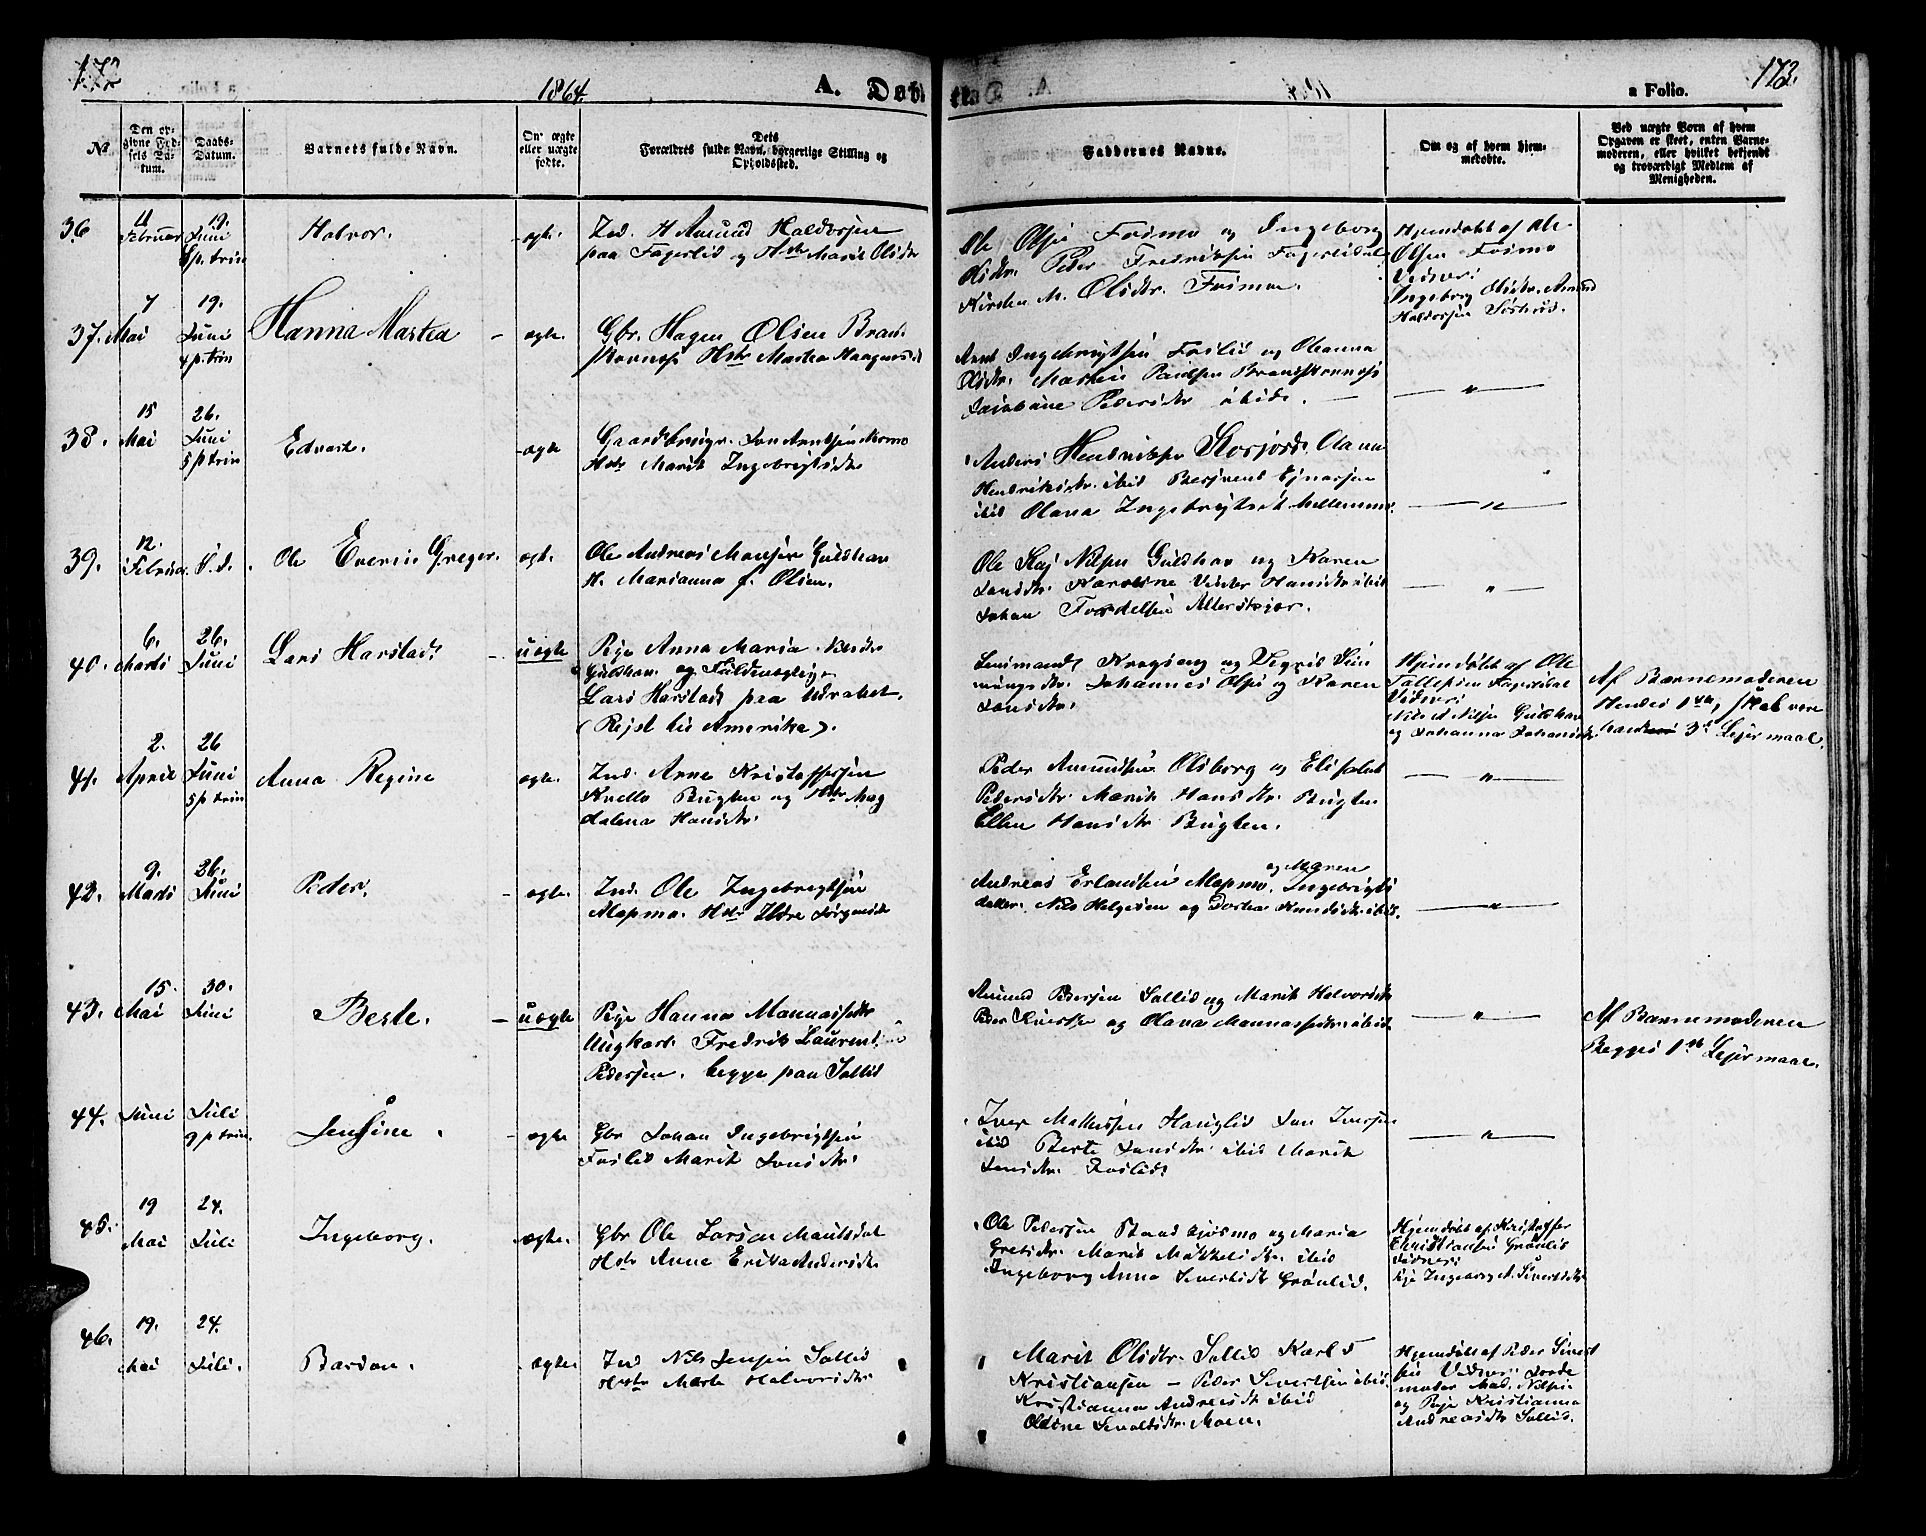 172
1864.
A. Døb
te
a Folio.
173.
No
Den opgivne Fødsels Datum.
Daabs-Datum.
Barnets fulde Navn.
Om ægte eller uægte fødte.
Dets Forældres fulde Navn, borgerlige Stilling og Opholdssted.
Faddernes Navne.
Om og af hvem hjemmedøbte.
Ved uægte Børn af hvem Opgaven er skeet, enten Barnemoderen, eller hvilket bekjendt og troværdigt Medlem af Menigheden.
36
Februar
19. Juni
Halvor.
ægte.
Ind. Amund Haldorsen
paa Fagerlid og Hstr Marit Olsdtr
Ole Olsen Fosmo og Ingeborg
Olsdtr. Peder Fredriksen
Kirsten M. Olsdtr. Fosmo.
Hjemdøbt af Ole
Olsen Fosmo
Vidner:
Ingeborg Olsdtr. Amund
37.
7 Mai
19. Juni
4 p. trin
Hanna Martea
ægte.
Gbr. Hagen Olsen
Hstr Martha
Arnt Ingebrigtsen Foslid og
Olsdtr.
Pedersdtr ibid.
— " —
38.
15 Mai
26. Juni
5 p trin
Edvart.
ægte
Gaardbruger. Jon Arntsen Momo
Hstr Marit Ingebrigtsdtr
Anders Hendriksen Storjord.
Hendriksdtr. ibid
ibid Olava Ingebrigtsdtr Mellemmo.
— " —
39.
12. Februar
S. d.
Ole Everin Greger.
ægte.
Ole Andreas Monsen Guldhav
H. Marianna f. Olsen.
Ole Kaj Nilsen Guldhav og Karen
Jonsdtr. Hansdtr ibid
Johan
— " —
40.
6. Marts
26. Juni
Lars Harstad.
uægte
Pige Anna Maria
Guldhav og
Lars Harstad paa Udraket.
(Rejst til Amerika).
Lensmand Kragseng og Sigrid
Johannes Olsen og Karen
Jonsdtr.
Hjemdøbt af Ole
Tollefsen
Vidner:
Nils A Nilsen Guldhav
og Johanna Johansdtr.
Af Barnemoderen
Hendes 1ste, skal være
3d Lejermaal.
41.
2. April
26 Juni
5 p trin
Anna Regine
ægte.
Ind. Arne Kristoffersen
Bugten og Hstr Mag
dalena Hansdtr.
Peder Amundsen Olsborg og Elisabet
Pedersdtr. Marit Hansdtr. Bugten
Ellen Hansdtr Bugten.
— " —
42.
9. Marts
26. Juni
Peder.
ægte.
Ind. Ole Ingebrigtsen
Alapmo. Hstr Ildre Jørgensdtr
Andreas Erlandsen Alapmo. og Maren Ingebrigts
datter. Nils Helgesen og Dorthea Knudsdtr ibid.
— " —
43.
15. Mai
30. Juni
Berte.
uægte
Pige Hanna Mannassdtr
Ungkarl. Fredrik Laurents
Pedersen. begge paa Sollid
Amund Pedersen Sollid og Marit Halvorsdtr
Peder og Olava Mannassdtr ibid
— " —
Af Barnemoderen
Begges 1ste Lejermaal.
44.
Juni
Juli
9 p trin.
Jensine.
ægte
Gbr Johan Ingebrigtsen
Foslid Marit Jonsdtr.
Iver Mathissen Hauglid Jon Iversen
ibid Berte Jonsdtr. ibid Marit
Jonsdtr. Foslid
— " —
45.
19 Mai
24. Juli
Ingeborg.
ægte.
Gbr Ole Larsen
Hstr Anne Erika Andersdtr
Ole Pedersen og Maria
Marit ibid
Ingeborg Anna Sivertsdtr Grønlid.
Hjemdøbt af Kristoffer
Christiansen Grønlid
Vidner:
Pige Ingeborg A. Sivertsdtr.
46.
19. Mai
24. Juli.
Bardon.
ægte.
Ind Nils Jensen Sollid
Hstr Marte Halvorsdtr
Marit Olsdtr. Sollid Karl
Kristiansen - Peder Sivertsen ibid.
Kristianna Andreasdtr ibid
Oldine Moen.
Hjemdøbt af Peder Sivert
sen Vidner: Jorde
moder Mad. Nilsen
og Pige Kristianna
Andreasdtr Sollid.